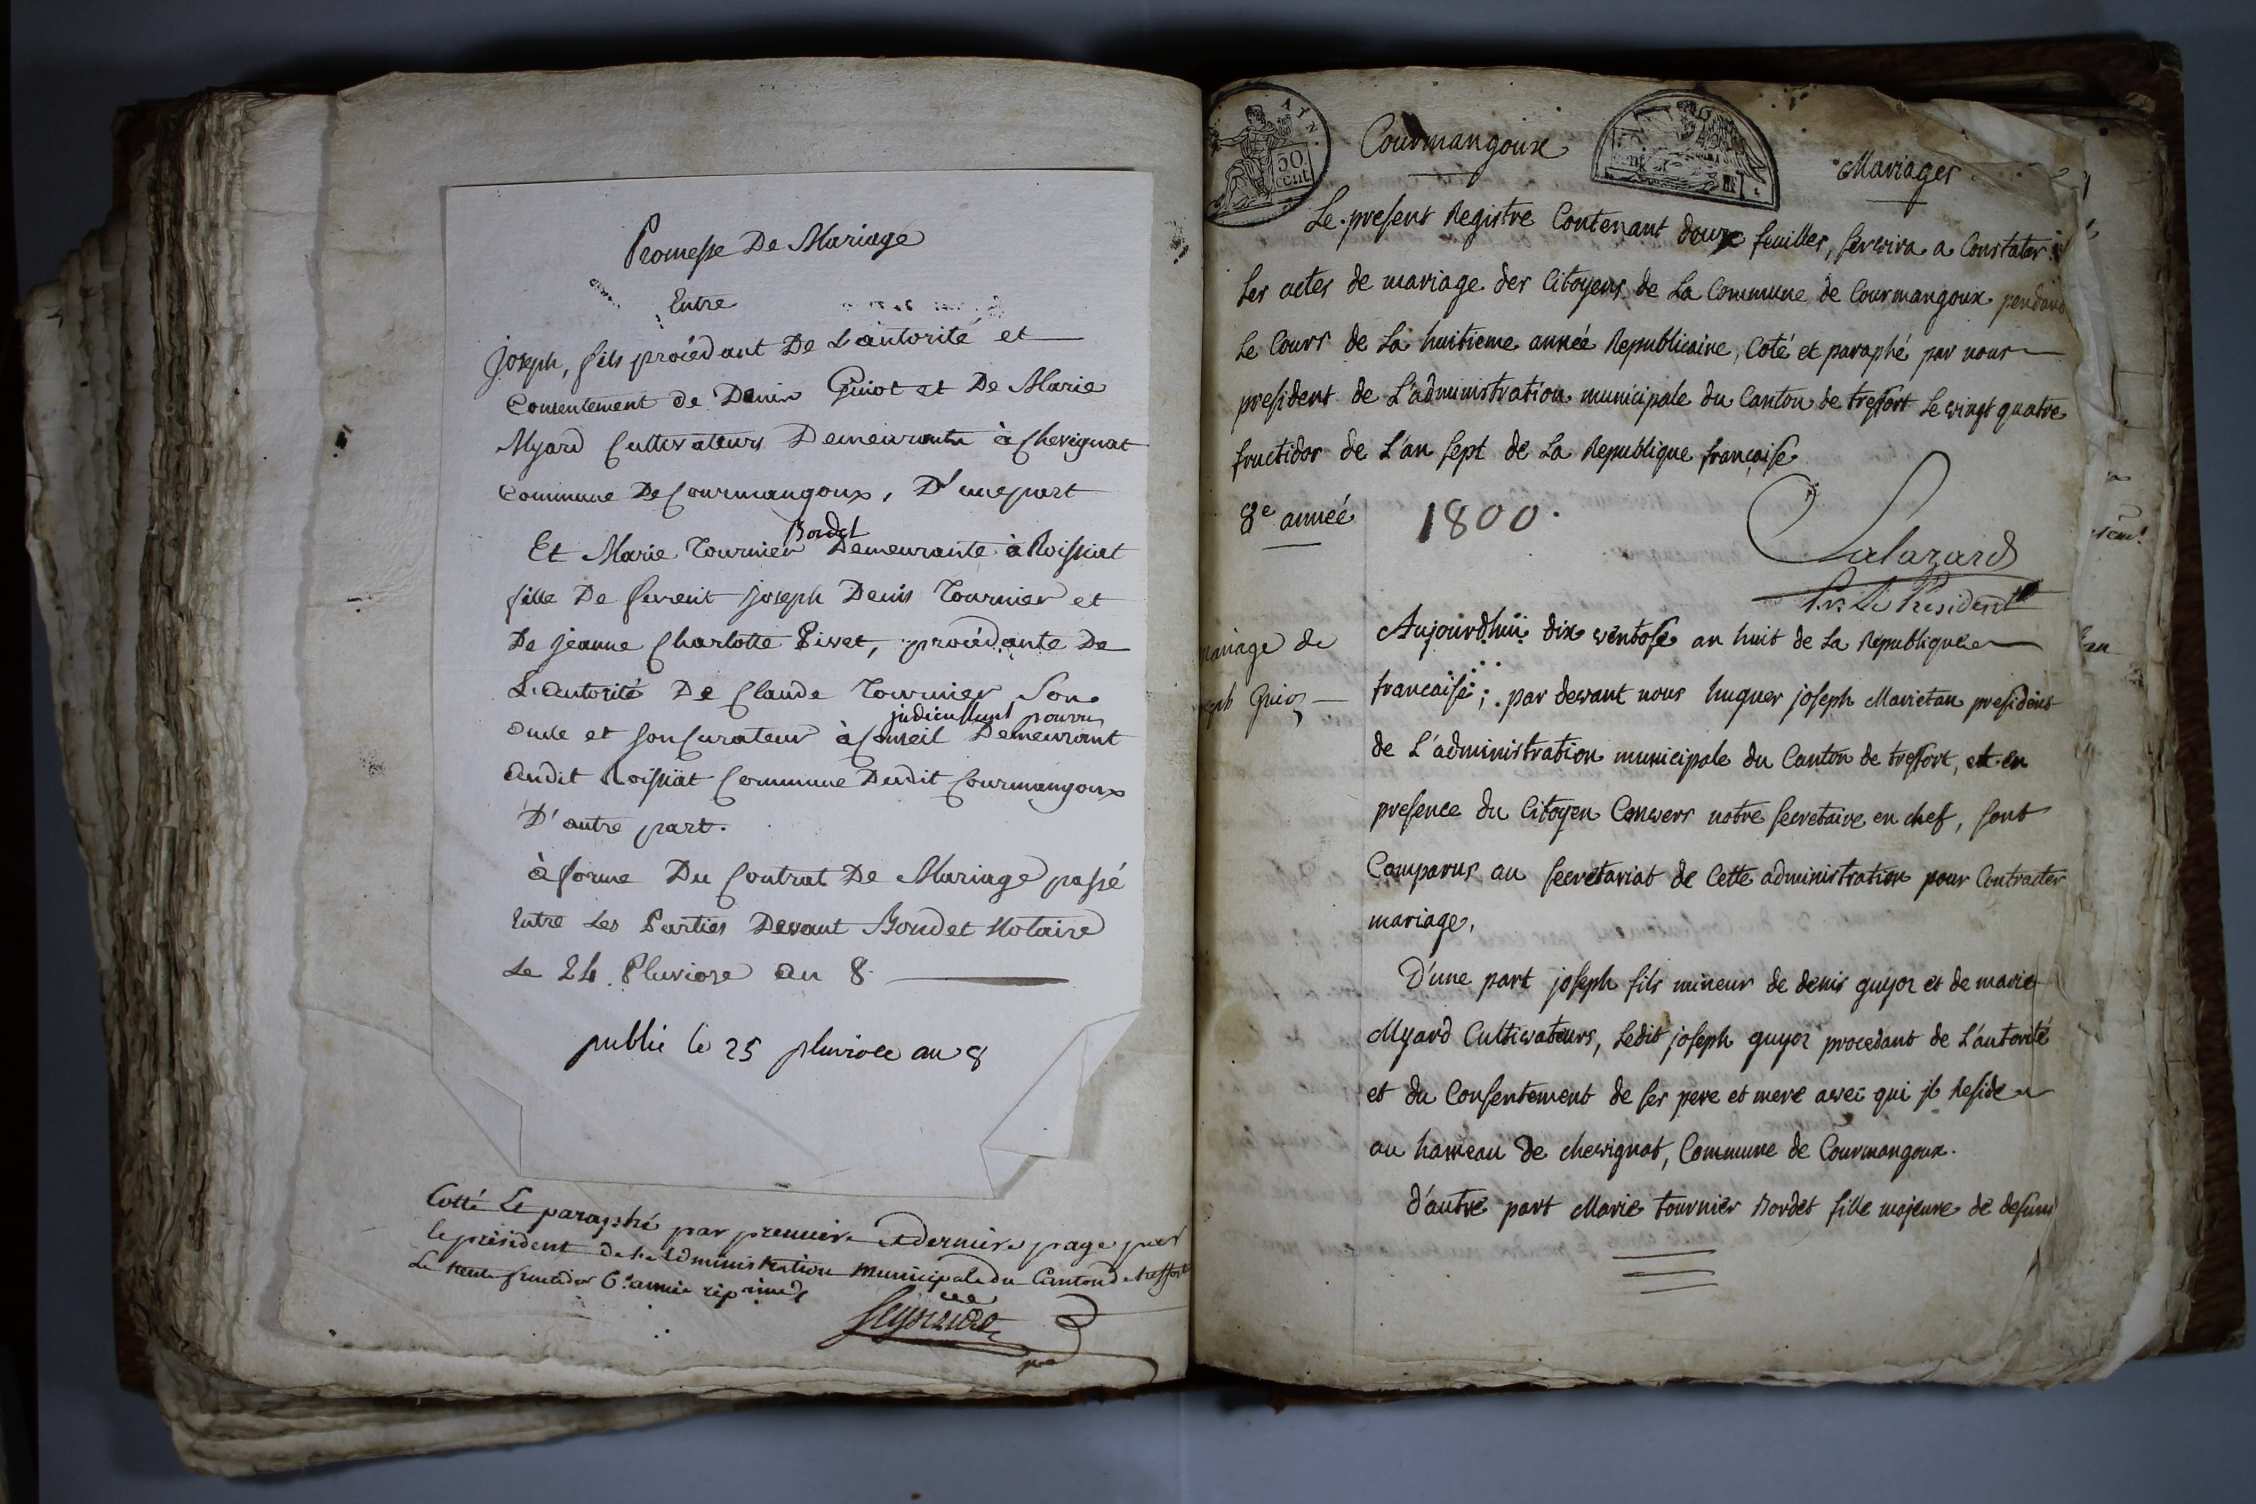 Promesse De Mariage
Entre
joseph, fils procédant De L'autorité et
Consentement de Denis Guiot et De Marie
Myard Cultivateurs Demeurants à Chevignat
Commune De Courmangoux, D'une part
Et Marie Tournier Bordet Demeurante à Roissiat
fille De Joseph Denis Tournier et
De jeanne Charlotte Pivet, procédante De
L'autorité De Claude Tournier Son
oncle et Son Curateur à Conseil judiciellemt pourvu Demeurant
audit Roissiat Commune Dudit Courmangoux
D'autre part.
à forme Du Contrat De Mariage passé
entre Les Parties Devant Bondet Notaire
Le 24 Pluviose an 8
publié le 25 pluviose an 8
Cotté Et paraphé par premiere et derniere page par
le président de la Administration municipale du Canton de treffort
Le trente fructidor 6e année
AIN.
50.
cent.
Courmangoux
Mariages
Le present Registre Contenant douze feuilles, servira a Constater
Les actes de mariage des Citoyens de La Commune de Courmangoux pendant
Le Cours de La huitieme année Republicaine, Coté et paraphé par nous
president de L'administration municipale du Canton de treffort Le vingt quatre
fructidor de L'an sept de La Republique française
8e année
1800.
Salazard
Le President
mariage de
Aujourdhui dix ventose an huit de La Republique
française; par devant nous hugues joseph Marietan president
de L'administration municipale du Canton de treffort, et en
presence du Citoyen Convers notre secretaire en chef, sont
Comparus au secretariat de Cette administration pour Contracter
mariage,
D'une part joseph fils mineur de denis guyoz et de marie
Myard Cultivateurs, Ledit joseph guyoz procedant de L'autorité
et du Consentement de ses pere et mere avec qui il Reside
au hameau de chevignat, Commune de Courmangoux.
d'autre part Marie tournier Bordet fille majeure de defunt